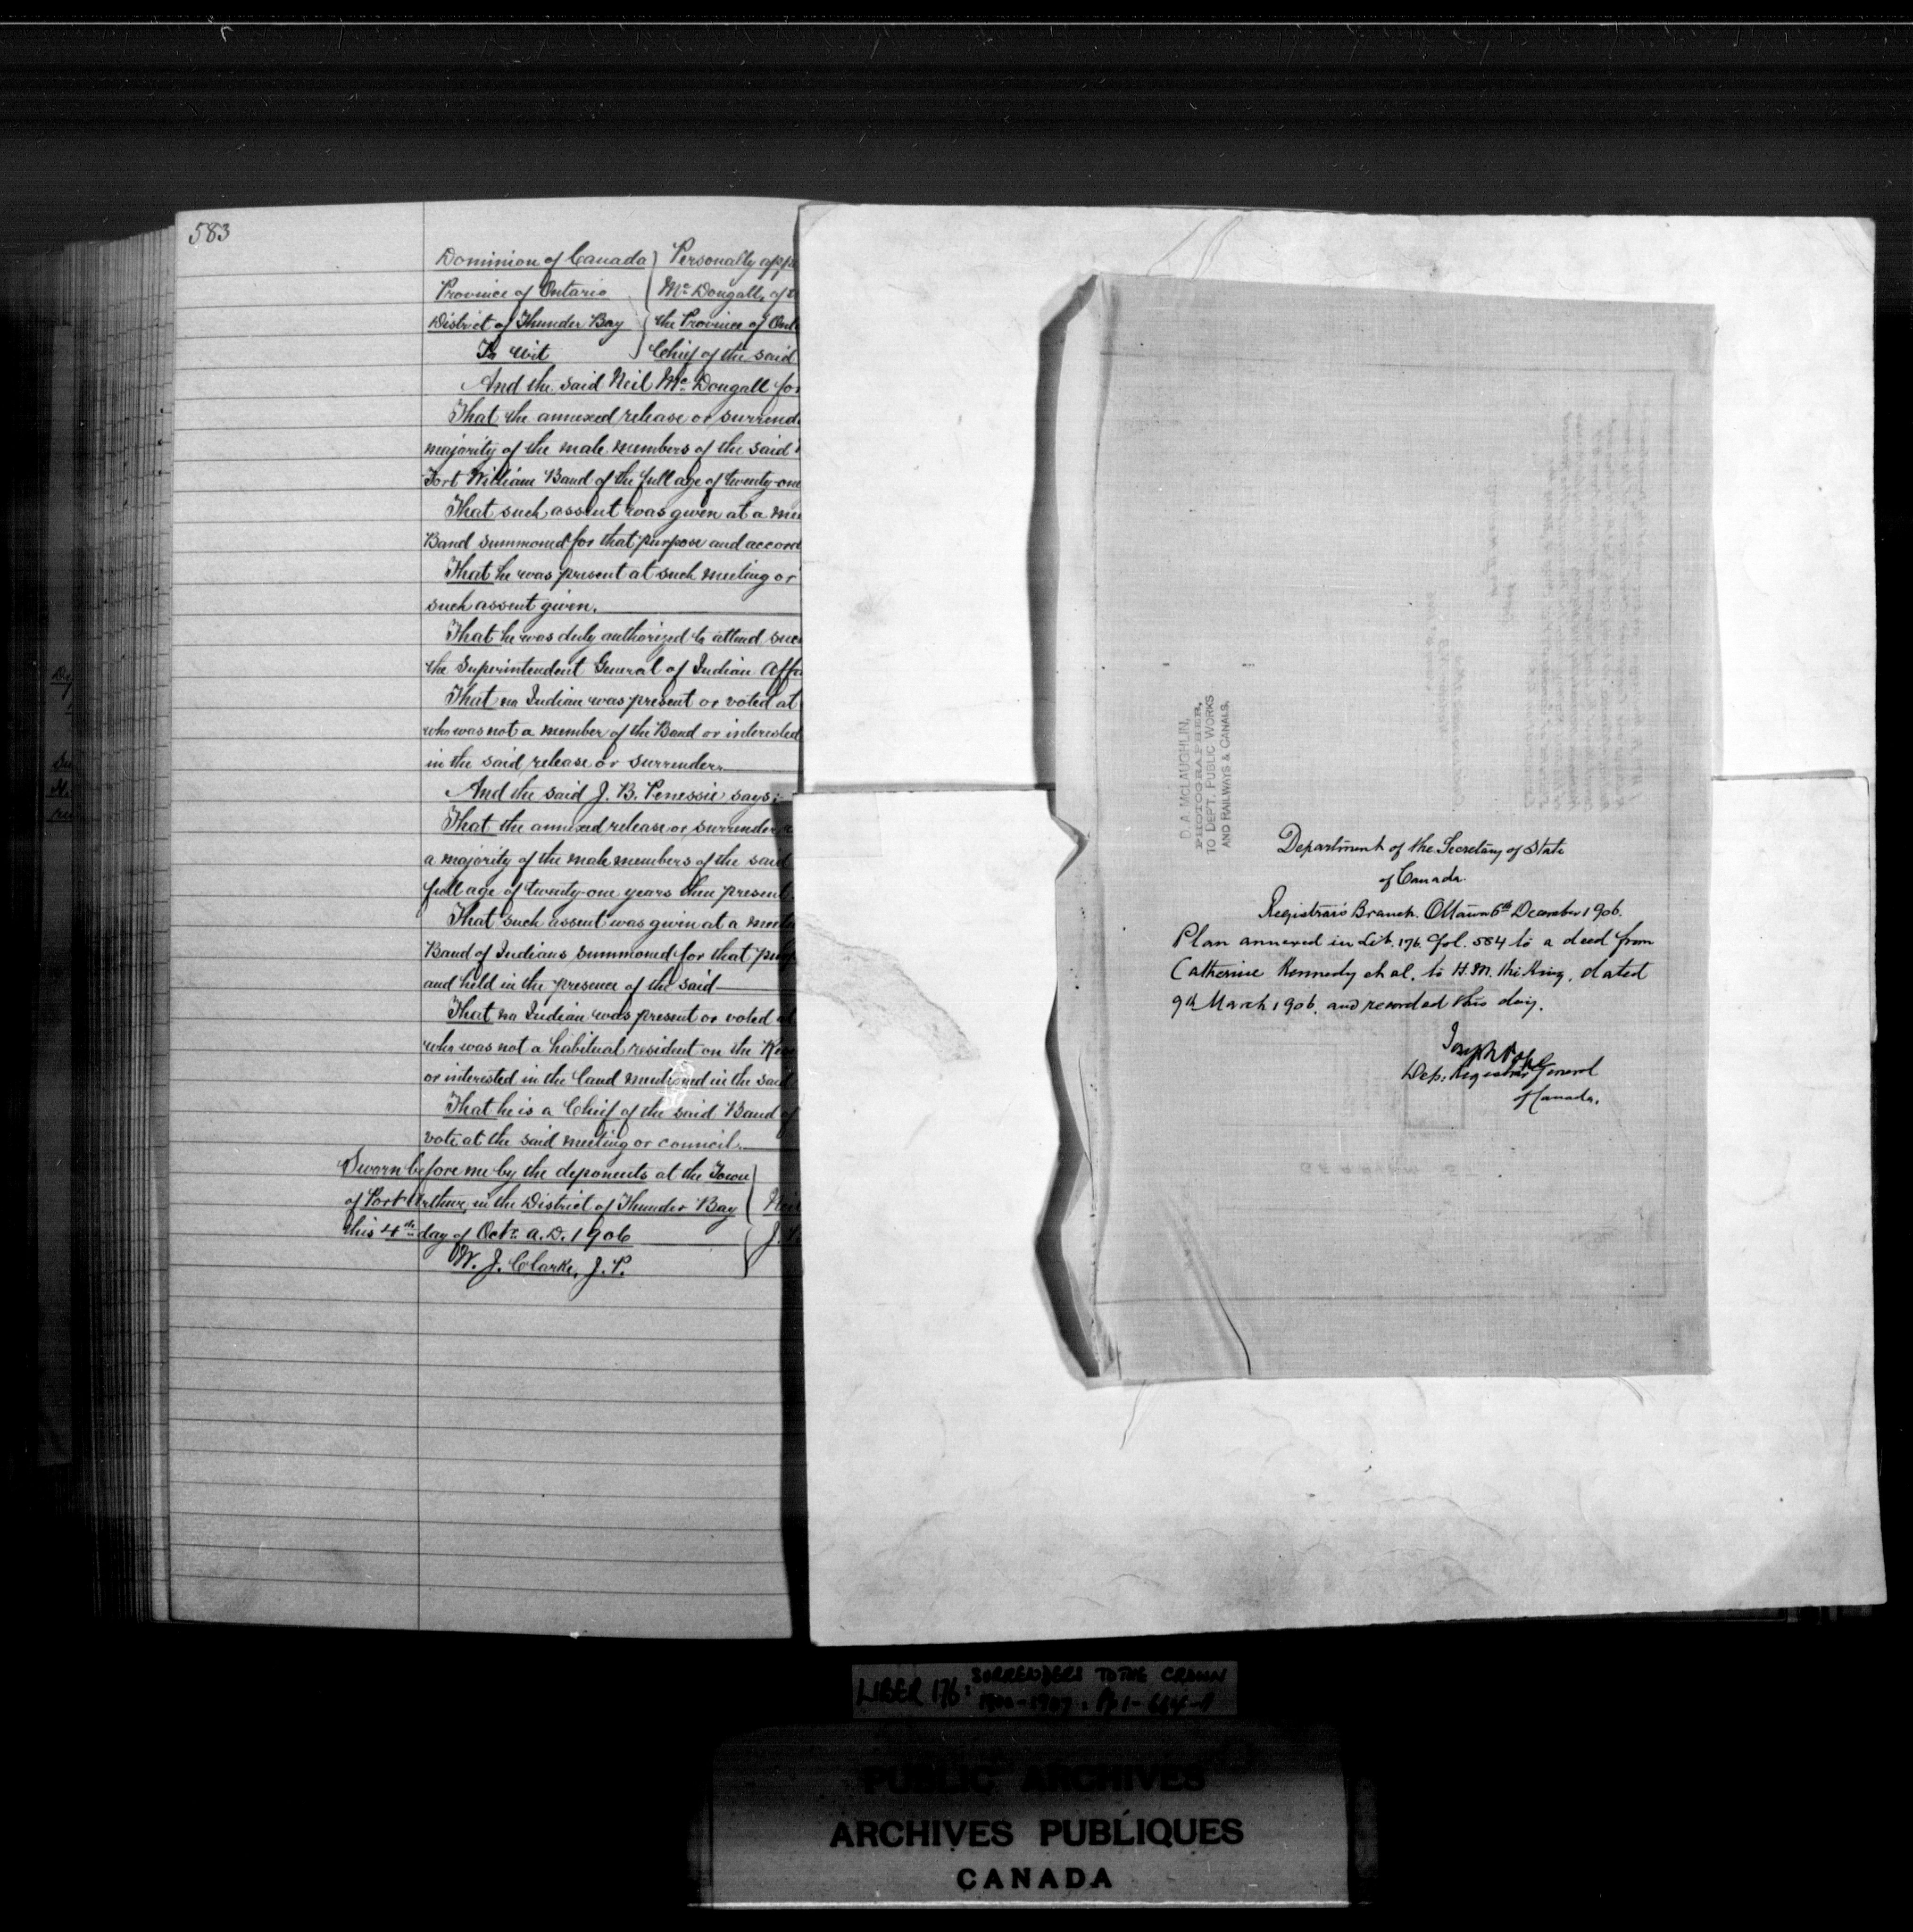 583
Dominion of Canada } Personally appe
Province of Ontario } Mc Dougall, of
District of Thunder Bay } the Province of Ont
To wit } Chief of the said
And the said Neil Mc Dougall for
That the annexed release or surrend
majority of the male members of the said
Fort William Band of the full age of twenty-one
That such assent was given at a mee
Band summoned for that purpose and accord
That he was present at such meeting or
such assent given.
That he was duly authorized to attend suc
the Superintendent General of Indian Affa
That no Indian was present or voted at
who was not a member of the Band or interested
in the said release or surrender.
And the said J. B. Penessie says:
That the annexed release or surrender
a majority of the male members of the said
full age of twenty-one years then present
That such assent was given at a meet
Band of Indians summoned for that purp
and held in the presence of the said
That no Indian was present or voted at
who was not a habitual resident on the Rese
or interested in the land mentioned in the said
That he is a Chief of the said Band of
vote at the said meeting or council.
Sworn before me by the deponents at the Town
of Port Arthur, in the District of Thunder Bay } Neil
this 4th day of Octr. A.D. 1906 } J.
W. J. Clarke, J.P.
D. A. McLAUGHLIN,
PHOTOGRAPHER,
TO DEPT. PUBLIC WORKS
AND RAILWAYS & CANALS.
Department of the Secretary of State
of Canada.
Registrar's Branch. Ottawa 6th December 1906.
Plan annexed in Lib. 176. Fol. 584 to a deed from
Catherine Kennedy et al. to H.M. the King, dated
9th March 1906, and recorded this day.
Joseph Pope
Dep. Registrar General
of Canada.
LIBER 176: SURRENDERS TO THE CROWN
PUBLIC ARCHIVES
ARCHIVES PUBLIQUES
CANADA